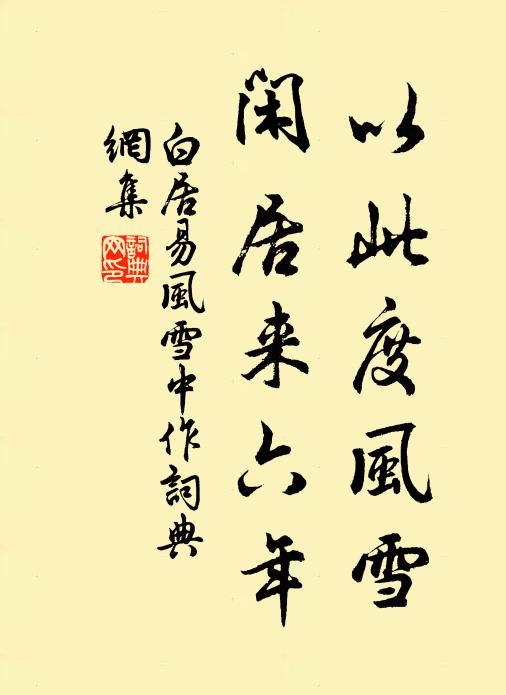 以此度風雪
閑居来六年
白居易風雪中作詞典
網集
詞典网印